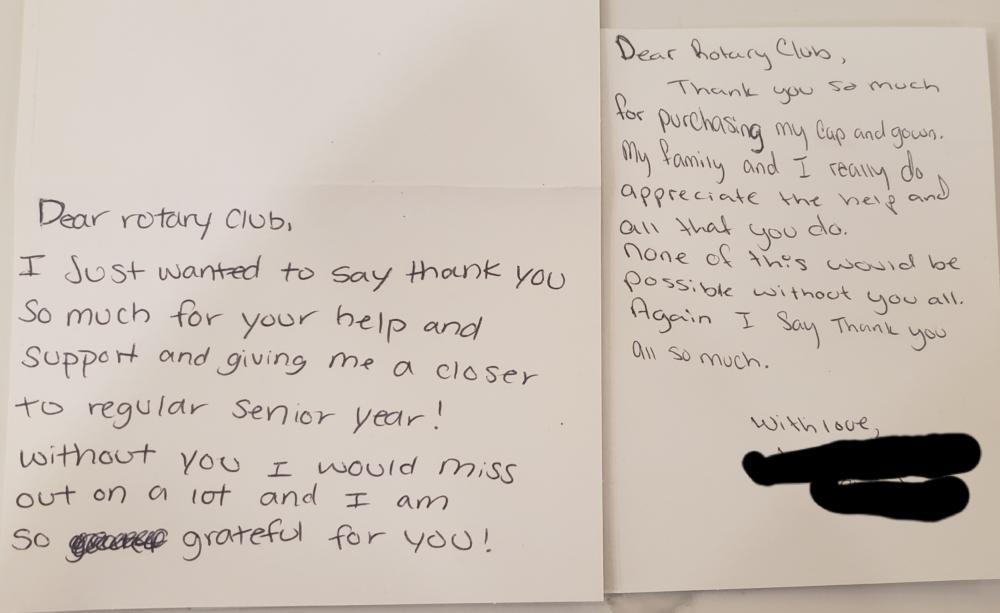 Dear rotary Club,
I Just wanted to say thank you
So much for your help and
Support and giving me a closer
to regular Senior year!
without you I would miss
out on a lot and I am
so grateful for you!
Dear Rotary Club,
Thank you so much
for purchasing my Cap and gown.
My family and I really do
appreciate the help and
all that you do.
None of this would be
possible without you all.
Again I Say Thank you
all so much.
With love,